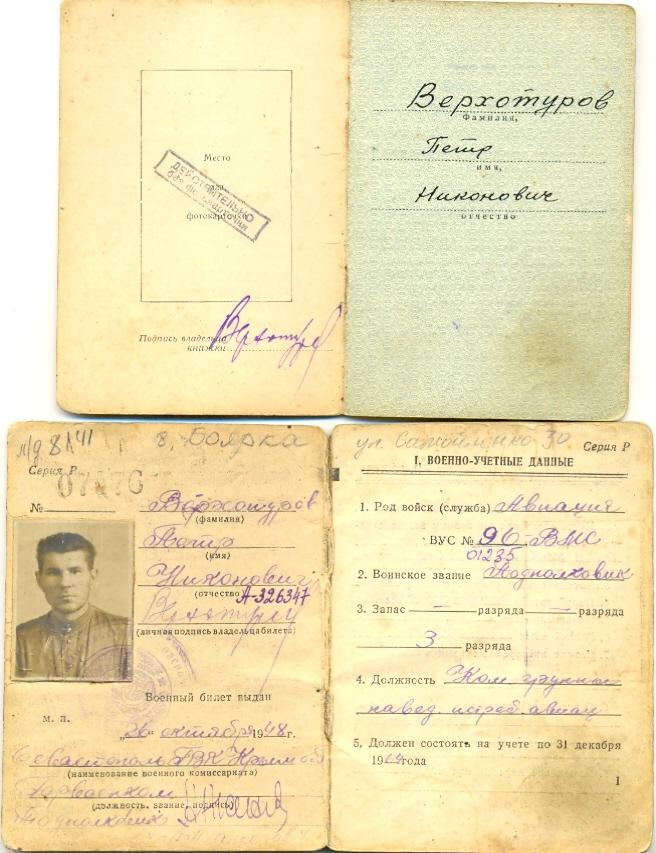 Место
для
фотокарточки
ДЕЙСТВИТЕЛЬНО
без фотокарточки
Подпись владельца
книжки
Верхотуров
Фамилия,
Петр
имя,
Никонович
отчество
г. Боярка
Серия Р
№
Верхотуров
(фамилия)
Петр
(имя)
Никонович
(отчество)
А-326347
(личная подпись владельца билета)
Военный билет выдан
М. П.
„26" октября 1948 г.
Севастополь ГВК Крымой
(наименование военного комиссариата)
Горвоенком
(должность, звание, подпись)
Подполковник
ул. 30
Серия Р
I. ВОЕННО-УЧЕТНЫЕ ДАННЫЕ
1. Род войск (служба) Авиация
ВУС № 96 ВМС
01235
2. Воинское звание Подполковник
3. Запас — разряда — разряда
3 разряда
4. Должность Ком группы
навед. истреб. авиац
5. Должен состоять на учете по 31 декабря
года
1